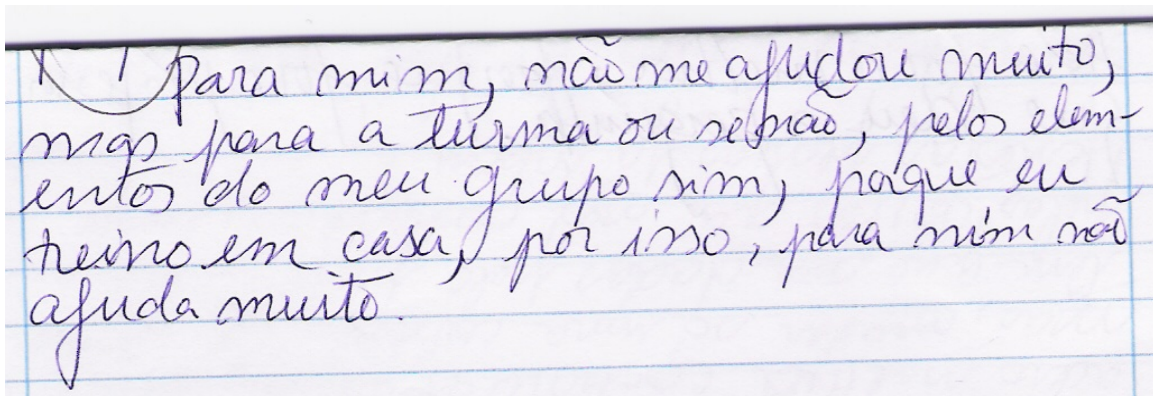 Para mim, não me ajudou muito,
mas para a turma ou senão, pelos elem-
entos do meu grupo sim, porque eu
treino em casa, por isso, para mim não
ajuda muito.